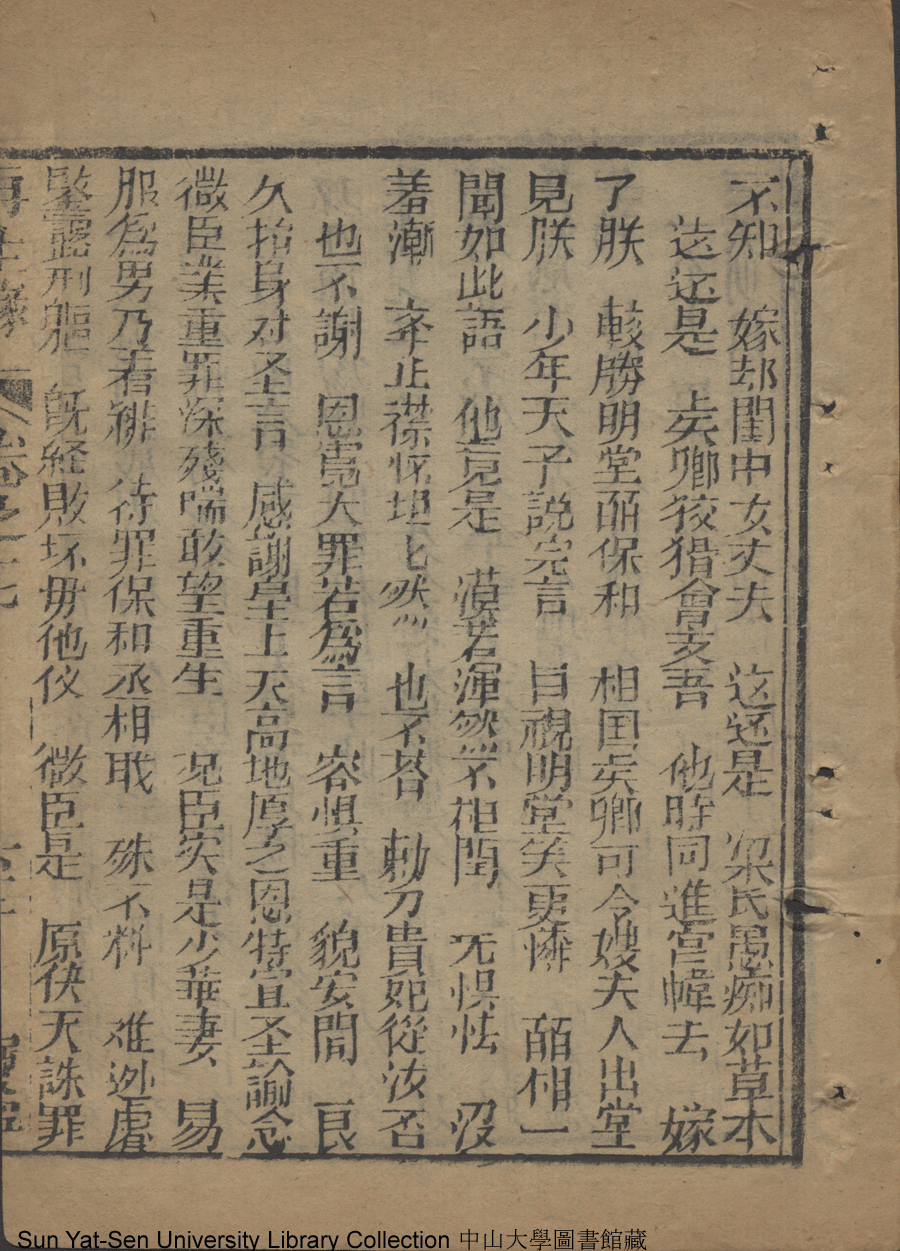 不知　嫁却閨中女丈夫　这还是　梁氏愚痴如草木
这还是　矣卿狡猾會玄吾　他時同進宮幃去　嫁
了朕　較勝明堂酈保和　相国矣卿可令嫂夫人出堂
見朕　少年天子說完言　目視明堂笑更憐　酈相一
聞如此語　他竟是　漠若渾然不相関　无惧怯　沒
羞漸　穽止襟怀坦匕然　也不答　勅ㄗ貴妃從汝否
也不謝　恩寬大罪若為言　容惧重　貌安間　良
久抬身对圣言　感謝皇上天高地厚之恩特宣圣諭念
微臣業重罪深殘喘敢望重生　况臣实是少華妻　易
服為男乃着緋　待罪保和丞相戝　殊不料　难迯虐
鑒露刑軀　既経敗坏毋他仪　微臣是　原俠天誅罪
再生緣　卷之十七
Sun Yat-Sen University Library Collection 中山大學圖書館藏